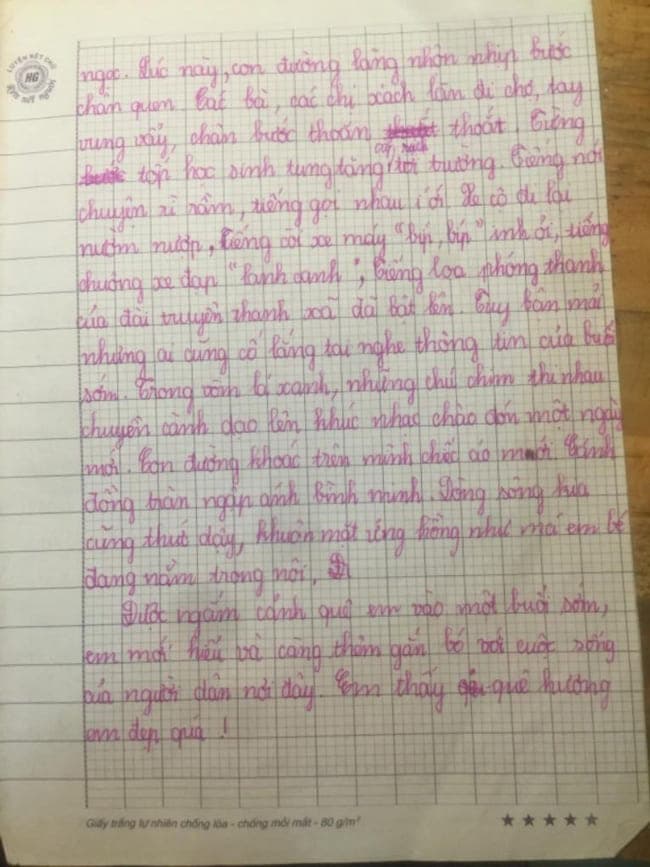 LUYỆN VIẾT CHỮ
HG
ngọc. Lúc này, con đường làng nhộn nhịp bước
chân quen. Các bà, các chị xách làn đi chợ, tay
vung vẩy, chân bước thoăn thoắt. Tiếng
cặp sách
tốp học sinh tung tăng tới trường. Tiếng nói
chuyện rì rầm, tiếng gọi nhau í ới. Xe cộ đi lại
nườm nượp, tiếng còi xe máy "bíp, bíp" inh ỏi, tiếng
chuông xe đạp "lanh canh", tiếng loa phóng thanh
của đài truyền thanh xã đã bật lên. Tuy bận mải
nhưng ai cũng cố lắng tai nghe thông tin của buổi
sớm. Trong vòm lá xanh, những chú chim thi nhau
chuyền cành dạo lên khúc nhạc chào đón một ngày
mới. Con đường khoác trên mình chiếc áo mới. Cánh
đồng tràn ngập ánh bình minh. Dòng sông
cũng thức dậy, khuôn mặt ửng hồng như má em bé
đang nằm trong nôi.
Được ngắm cảnh quê em vào một buổi sớm,
em mới hiểu và càng thêm gắn bó với cuộc sống
của người dân nơi đây. Em thấy quê hương
em đẹp quá!
Giấy trắng tự nhiên chống lóa - chống mỏi mắt - 80 g/m²